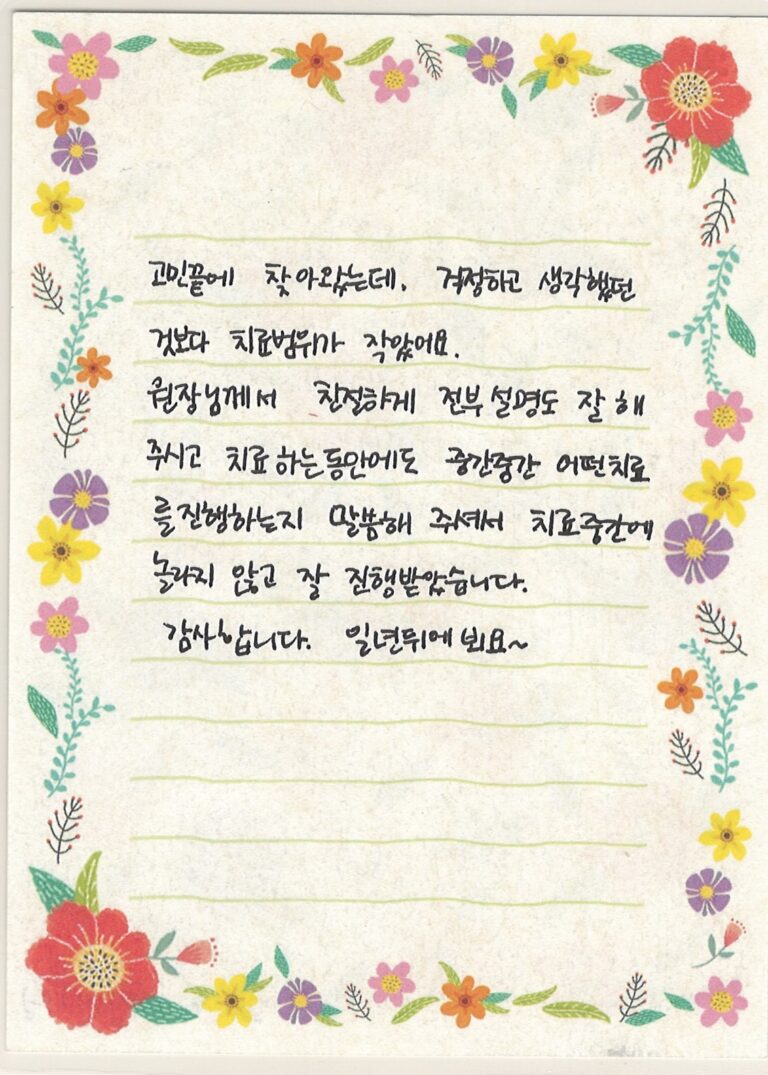 고민끝에 찾아왔는데, 걱정하고 생각했던
것보다 치료범위가 작았어요.
원장님께서 친절하게 전부 설명도 잘 해
주시고 치료하는동안에도 중간중간 어떤치료
를진행하는지 말씀해 주셔서 치료중간에
놀라지 않고 잘 진행받았습니다.
감사합니다. 일년뒤에 뵈요~